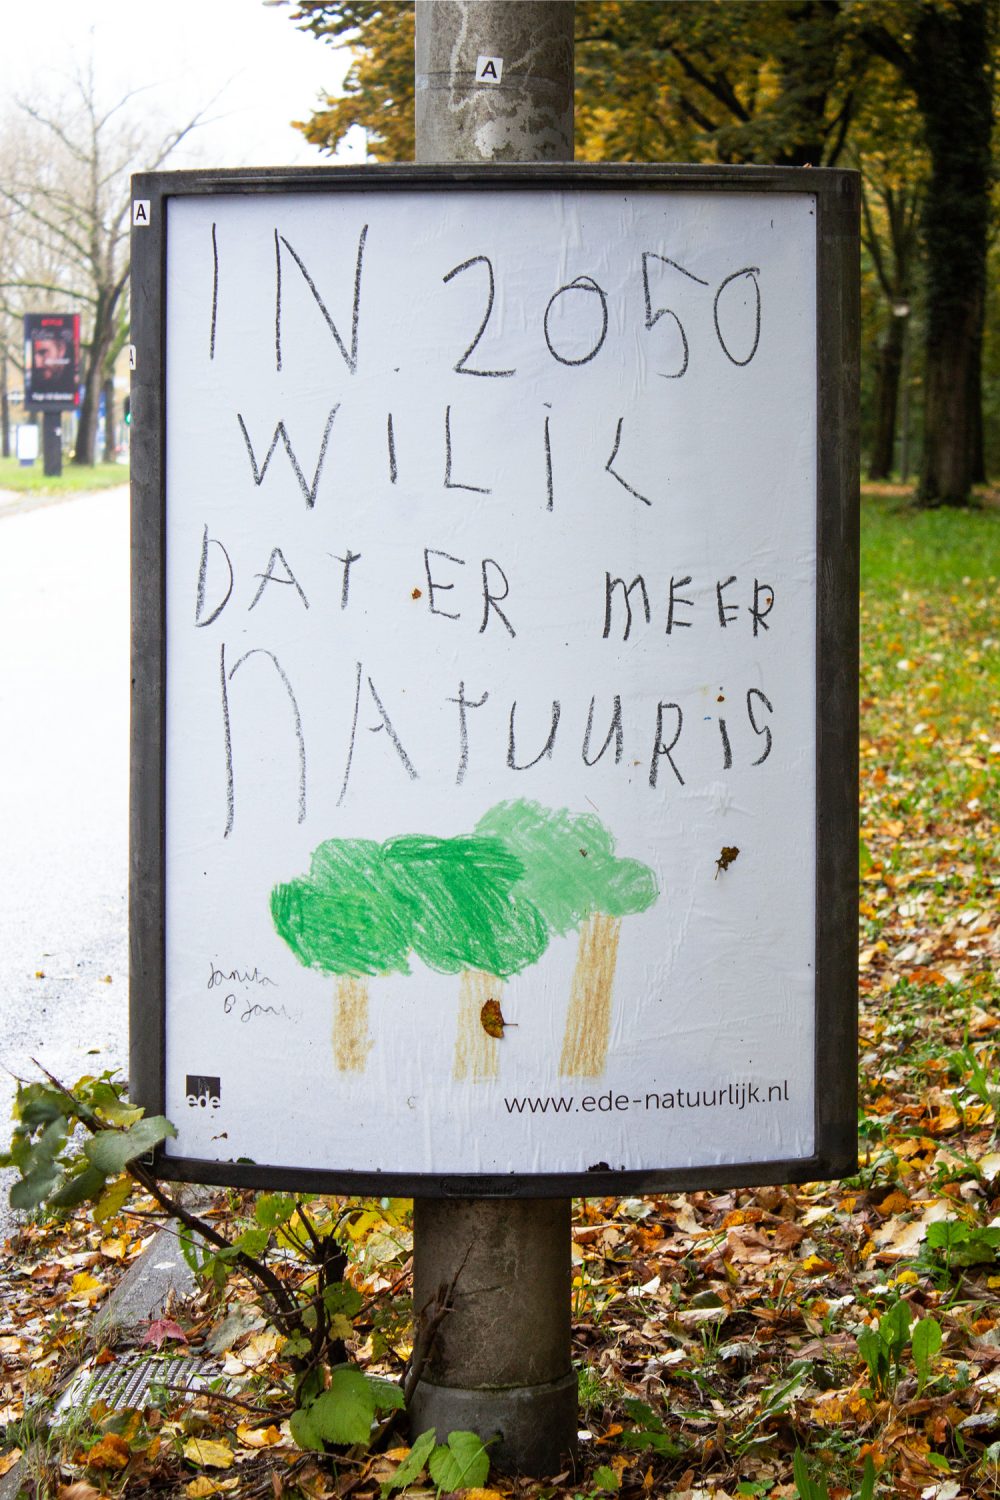 A
A
A
IN 2050
WIL ik
DAT ER MEER
NATUUR is
Janita
6 jaar
ede
www.ede-natuurlijk.nl
NETFLIX